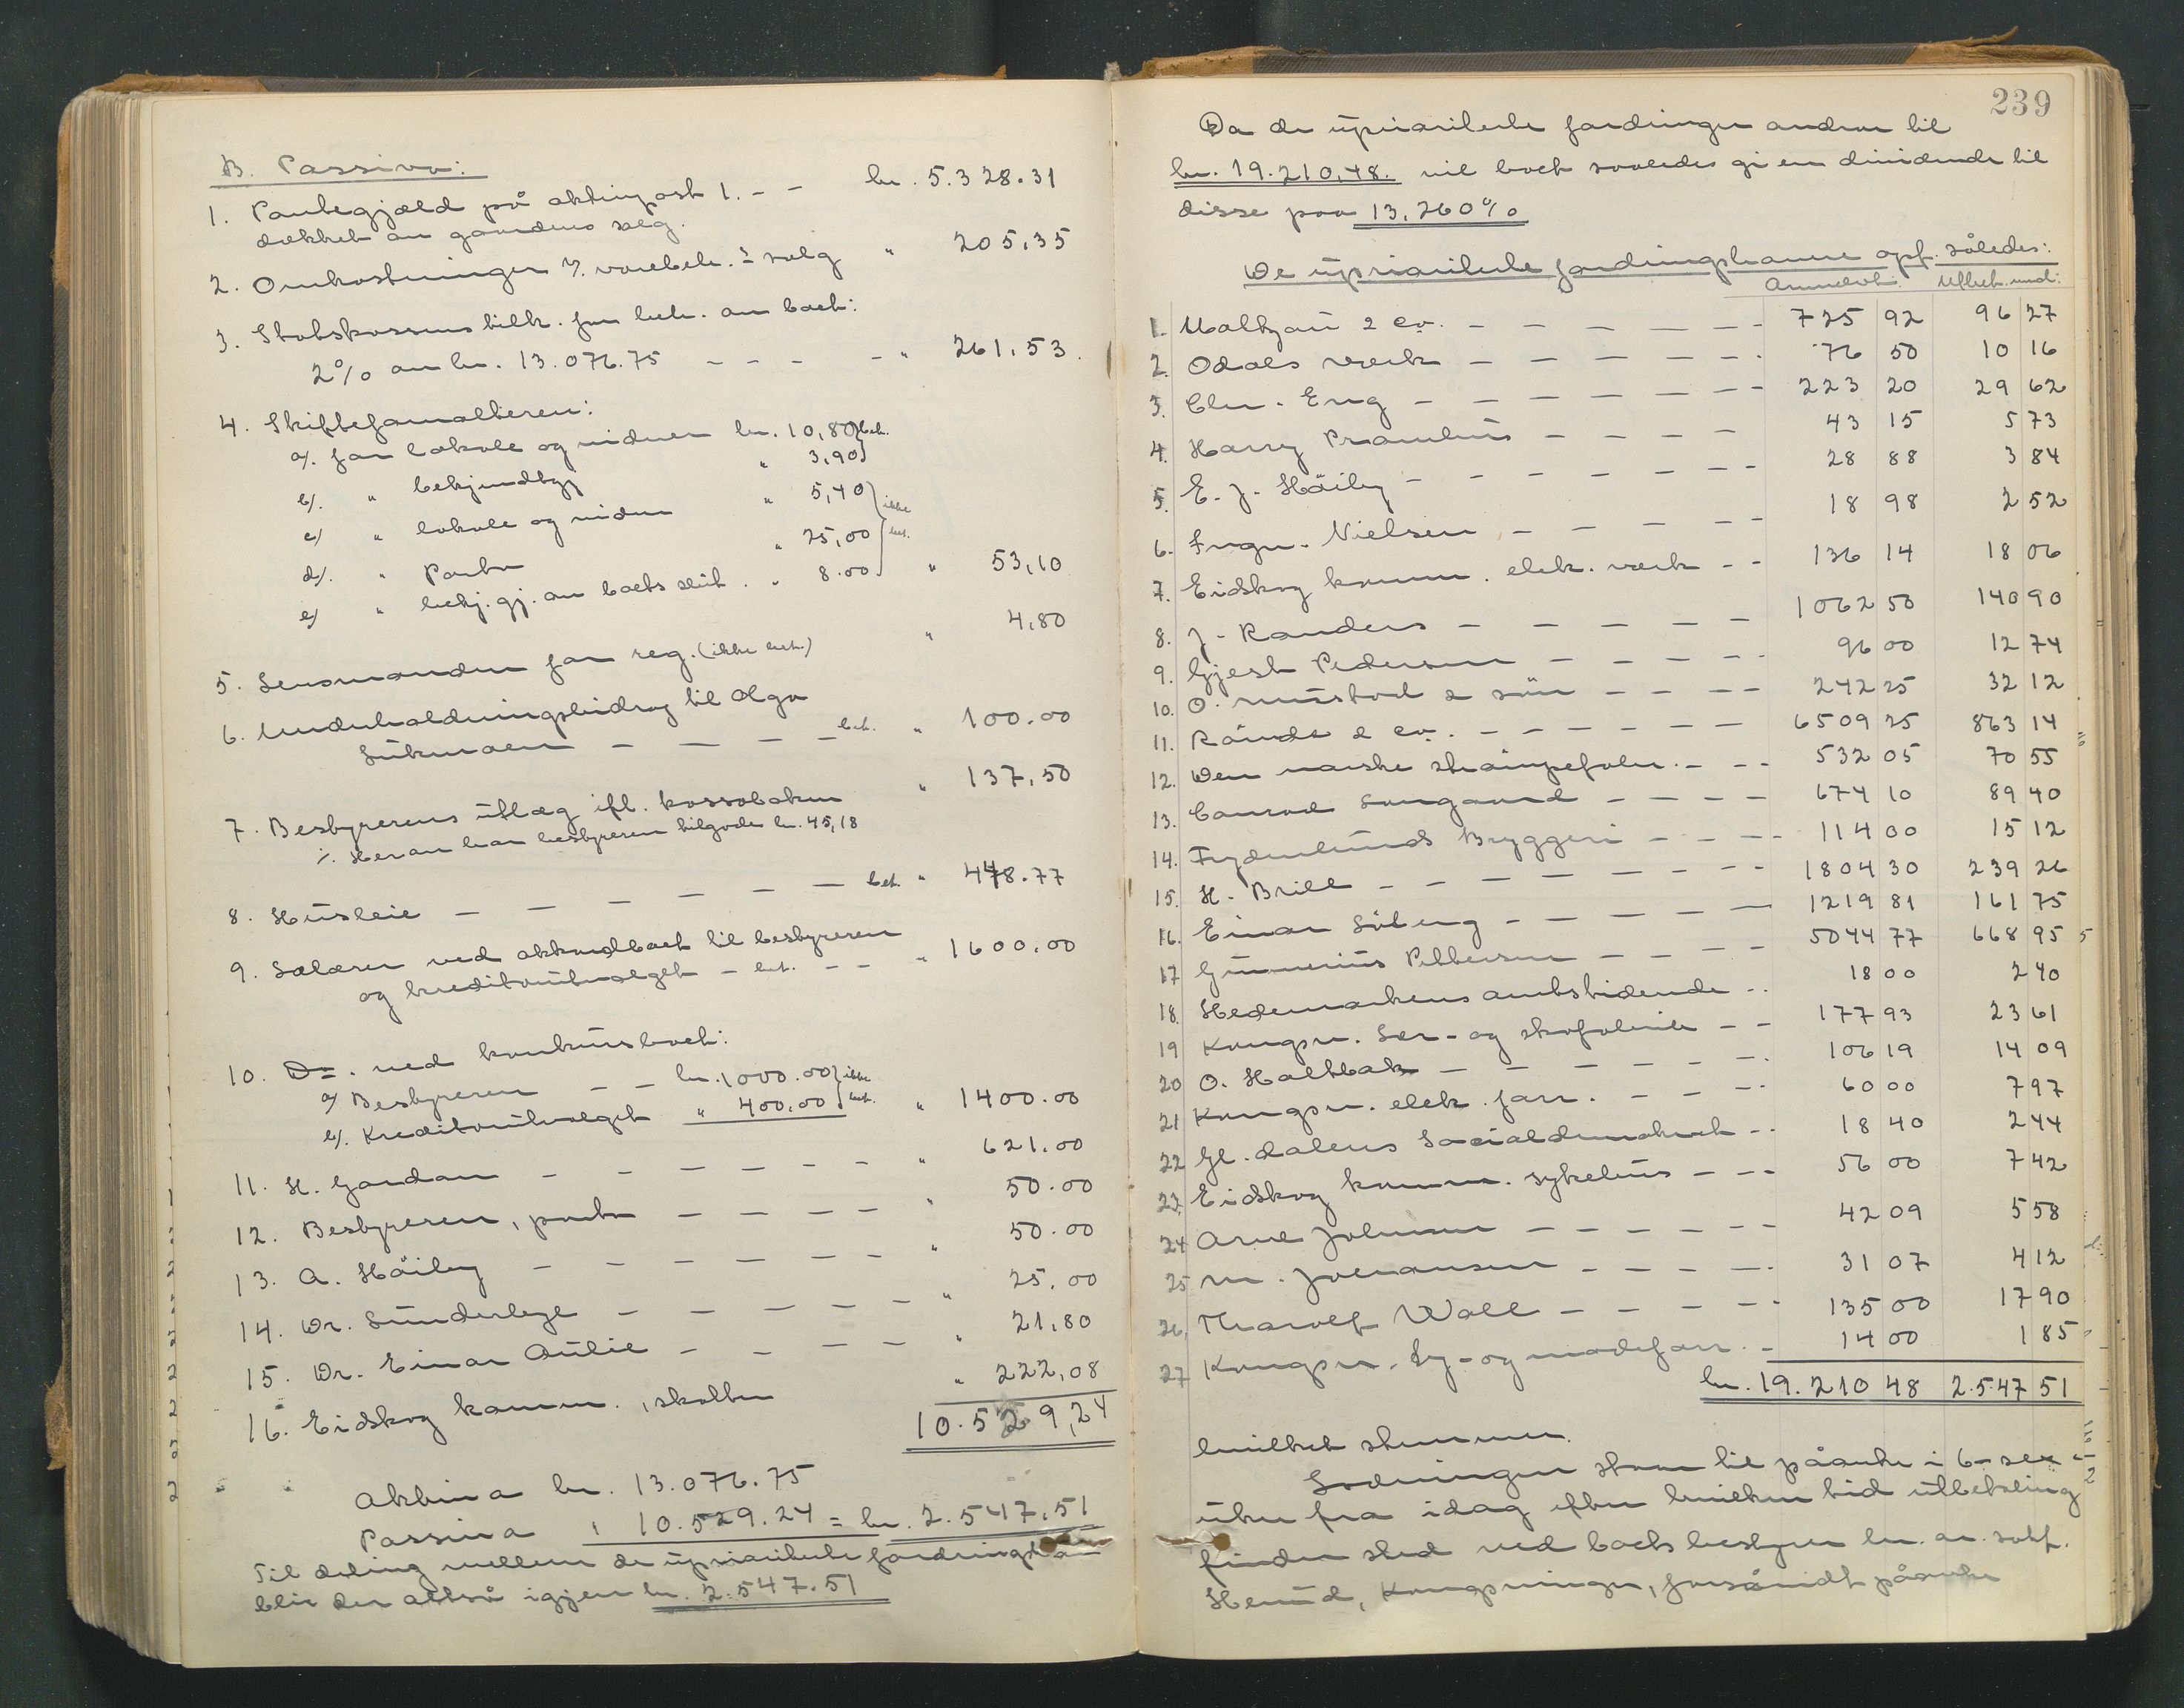 B. Passiva:
1. Pantegjæld på aktivpost 1. - - kr. 5.328.31
dækket av gaardens salg.
2. Omkostninger v. varebeh. & salg " 205,35
3. Statskassens tilk. for beh. av boet:
2% av kr. 13.076.75 - - - - " 261,53.
4. Skifteforvalteren:
a/. for lokale og vidner kr. 10,80 } bet.
b/. " bekjendtgj. " 3,90 }
c/ " lokale og vidner " 5,40 } ikke
d/. " Porto " 25,00 } bet.
e/ " bekj.gj. av boets slut. " 8.00 } " 53,10
5. Lensmanden for reg. (ikke bet.) " 4,80
6. Underholdningsbidrag til Olga
- - - - bet. " 100.00
7. Bestyrerens utlæg ifl. kassaboken " 137,50
./. Herav har bestyreren tilgode kr. 45,18
8. Husleie - - - - - - bet. " 448.77
9. Salærer ved akkordboet til bestyreren
og kreditorutvalget - bet. - - " 1600.00
10. Do. ved konkursboet:
a/ Bestyreren - - kr. 1000.00 } ikke
b/. Kreditorutvalget " 400,00 } bet. " 1400.00
11. H. Gardar - - - - - - " 621.00
12. Bestyreren, porto - - - - " 50.00
13. A. Häiby - - - - - " 50.00
14. Dr. Sunderbye - - - - - " 25,00
15. Dr. Einar Aulie - - - - " 21,80
16. Eidskog komm., skatter " 222,08
10.529,24
Aktiva kr. 13.076.75
Passiva " 10.529.24 = kr. 2.547,51
Til deling mellem de uprioriterte fordringshav
blir der altså igjen kr. 2.547.51
239
Da de uprioriterte fordringer andrar til
kr. 19.210,48. vil boet saaledes gi en dividende til
disse paa 13,260%
De uprioriterte fordringshavere opf. således:
Anmeldt. Utbet. med:
1. Maltzau & Co. - - - - - - 725 92 96 27
2. Odals verk - - - - - - 76 50 10 16
3. Chr. Eng - - - - - - - 223 20 29 62
4. Harry - - - - 43 15 5 73
5. E. J. Häiby - - - - - - - 28 88 3 84
6. Ingv. Nielsen - - - - - 18 98 2 52
7. Eidskog komm. elek. verk - - 136 14 18 06
8. J. Randers - - - - - - 1062 50 140 90
9. Gjest Pedersen - - - - - 96 00 12 74
10. O. Mustad & sön - - - - 242 25 32 12
11. Rände & Co. - - - - - - 6509 25 863 14
12. Den norske strömpefabr. - - - 532 05 70 55
13. Conrad Langaard - - - - 674 10 89 40
14. Frydenlunds Bryggeri - - - - 114 00 15 12
15. H. Brill - - - - - - - - 1804 30 239 26
16. Einar Siberg - - - - - - 1219 81 161 75
17 Gunnerius Pettersen - - - - 5044 77 668 95
18. Hedemarkens amtstidende - - 18 00 2 40
19 Kongsv. lær- og skofabrik - - 177 93 23 61
20 O. Holtbak - - - - - - 106 19 14 09
21 Kongsv. elek. forr. - - - - 60 00 7 97
22 Gl.dalens Socialdemokrat - - 18 40 2 44
23. Eidskog komm. sykehus - - - 56 00 7 42
24 Arne Johnsen - - - - - - 42 09 5 58
25 M. Johansen - - - - - 31 07 4 12
26, Tharolf Wall - - - - - 135 00 17 90
27 Kongsv. Sy- og modeforr. - 14 00 1 85
kr. 19.210 48 2.547 51
hvilket stemmer.
Lodningen staar til påanke i 6 - sex -
uker fra idag efter hvilken tid utbetaling
finder sted ved boets bestyrer hr. o.r. sakf.
Herud, Kongsvinger, forsåvidt påanke